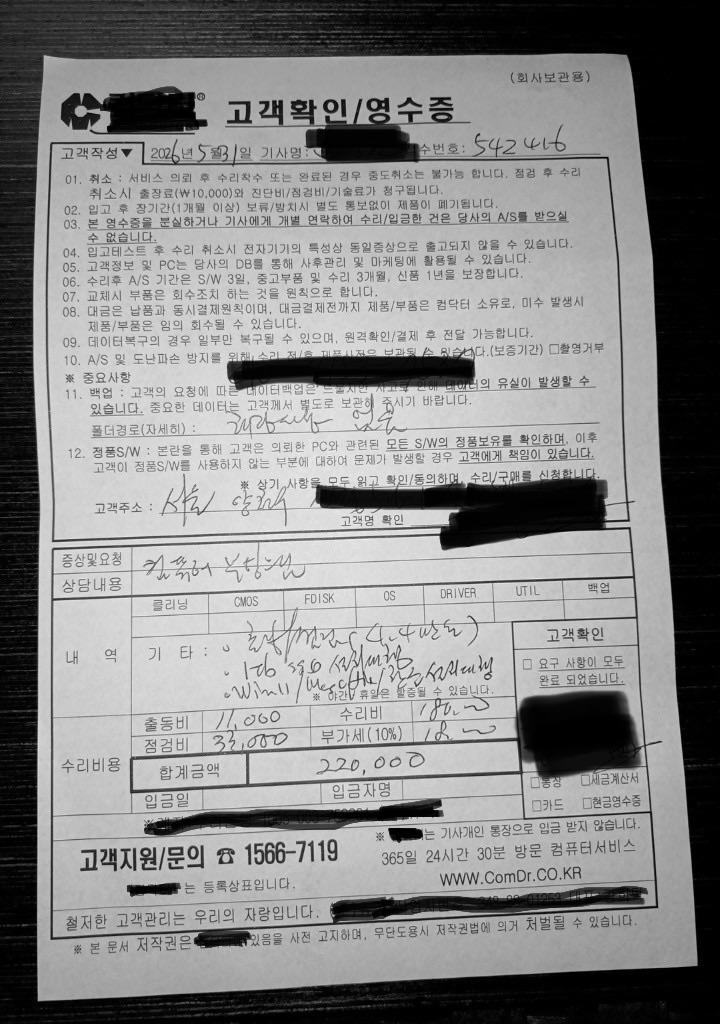 (회사보관용)
고객확인/영수증
고객작성▼ 2026년 5월 31일 기사명: 수번호: 542416
01. 취소 : 서비스 의뢰 후 수리착수 또는 완료된 경우 중도취소는 불가능 합니다. 점검 후 수리
취소시 출장료(₩10,000)와 진단비/점검비/기술료가 청구됩니다.
02. 입고 후 장기간(1개월 이상) 보류/방치시 별도 통보없이 제품이 폐기됩니다.
03. 본 영수증을 분실하거나 기사에게 개별 연락하여 수리/입금한 건은 당사의 A/S를 받으실
수 없습니다.
04. 입고테스트 후 수리 취소시 전자기기의 특성상 동일증상으로 출고되지 않을 수 있습니다.
05. 고객정보 및 PC는 당사의 DB를 통해 사후관리 및 마케팅에 활용될 수 있습니다.
06. 수리후 A/S 기간은 S/W 3일, 중고부품 및 수리 3개월, 신품 1년을 보장합니다.
07. 교체시 부품은 회수조치 하는 것을 원칙으로 합니다.
08. 대금은 납품과 동시결제원칙이며, 대금결제전까지 제품/부품은 컴닥터 소유로, 미수 발생시
제품/부품은 임의 회수될 수 있습니다.
09. 데이터복구의 경우 일부만 복구될 수 있으며, 원격확인/결제 후 전달 가능합니다.
10. A/S 및 도난파손 방지를 위해 수리 전/후 제품사진은 보관될 수 있습니다.(보증기간) □촬영거부
※ 중요사항
11. 백업 : 고객의 요청에 따른 데이터백업은 드물지만 사고로 인해 데이터의 유실이 발생할 수
있습니다. 중요한 데이터는 고객께서 별도로 보관해 주시기 바랍니다.
폴더경로(자세히) : 저장사항 없음
12. 정품S/W : 본란을 통해 고객은 의뢰한 PC와 관련된 모든 S/W의 정품보유를 확인하며, 이후
고객이 정품S/W를 사용하지 않는 부분에 대하여 문제가 발생할 경우 고객에게 책임이 있습니다.
※ 상기 사항을 모두 읽고 확인/동의하며, 수리/구매를 신청합니다.
고객주소 : 서울
고객명 확인
증상및요청 컴퓨터 부팅안됨
상담내용
클리닝 CMOS FDISK OS DRIVER UTIL 백업
내 역
기 타 : 출장/점검비 (4.4만원)
1TB SSD 설치대행
Win11/ 설치대행
※ 야간/휴일은 할증될 수 있습니다.
고객확인
□ 요구 사항이 모두
완료 되었습니다.
수리비용
출동비 11,000 수리비 180,000
점검비 33,000 부가세(10%) 18,000
합계금액 220,000
입금일 입금자명
□통장 □세금계산서
□카드 □현금영수증
※ 는 기사개인 통장으로 입금 받지 않습니다.
고객지원/문의 ☎ 1566-7119
365일 24시간 30분 방문 컴퓨터서비스
는 등록상표입니다.
WWW.ComDr.CO.KR
철저한 고객관리는 우리의 자랑입니다.
※ 본 문서 저작권은 있음을 사전 고지하며, 무단도용시 저작권법에 의거 처벌될 수 있습니다.